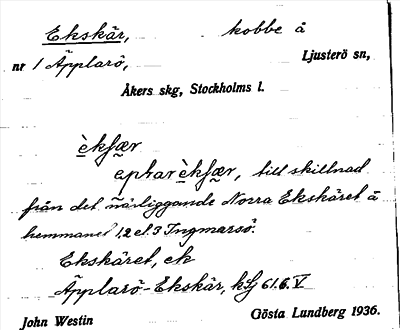 Ekskär, kobbe å
nr 1 Äpplarö, Ljusterö sn,
Åkers skg, Stockholms l.
èkſær
apɩarèkſær, till skillnad
från det närliggande Norra Ekskäret å
hemmanet 1, 2 el. 3 Ingmarsö.
Ekskäret, ek
Äpplarö-Ekskär, 61.6. V.
John Westin Gösta Lundberg 1936.